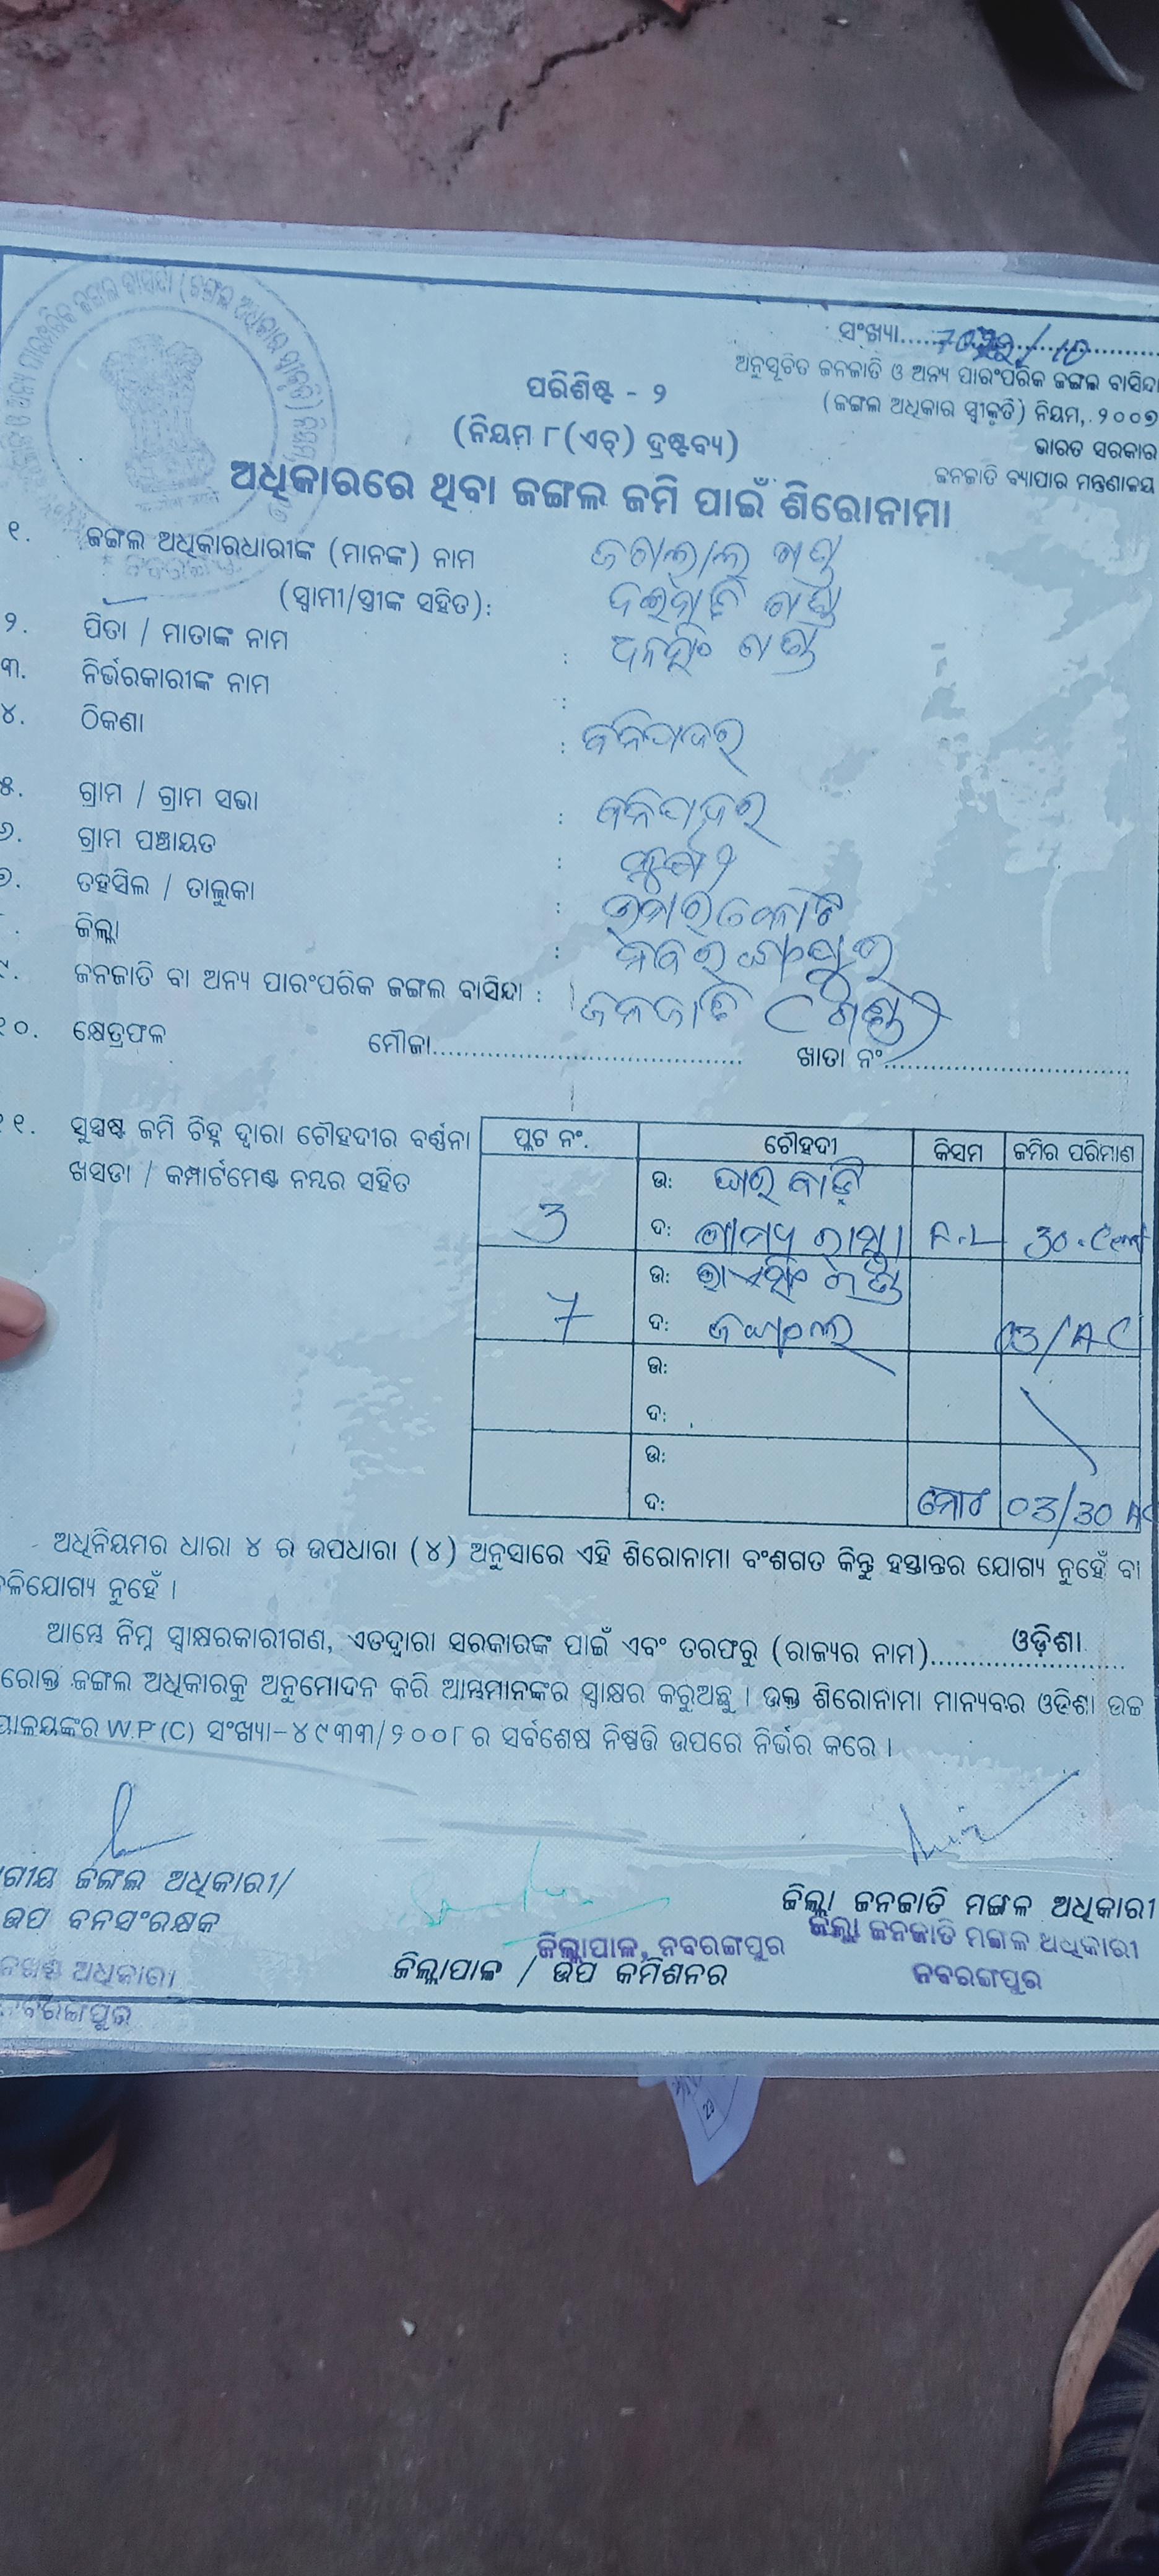 ସଂଖ୍ୟା....../10
ଅନୁସୂଚିତ ଜନଜାତି ଓ ଅନ୍ୟ ପାରଂପରିକ ଜଙ୍ଗଲ ବାସିନ୍ଦା
(ଜଙ୍ଗଲ ଅଧିକାର ସ୍ୱୀକୃତି) ନିୟମ, ୨୦୦୭
ଭାରତ ସରକାର
ଜନଜାତି ବ୍ୟାପାର ମନ୍ତ୍ରଣାଳୟ
ପରିଶିଷ୍ଟ - ୨
(ନିୟମ ୮(ଏଚ୍) ଦ୍ରଷ୍ଟବ୍ୟ)
ଅଧିକାରରେ ଥିବା ଜଙ୍ଗଲ ଜମି ପାଇଁ ଶିରୋନାମା
୧. ଜଙ୍ଗଲ ଅଧିକାରଧାରୀଙ୍କ (ମାନଙ୍କ) ନାମ ଜଗଲାଲ ଗଣ୍ଡ
(ସ୍ୱାମୀ/ସ୍ତ୍ରୀଙ୍କ ସହିତ): ଗଣ୍ଡ
୨. ପିତା / ମାତାଙ୍କ ନାମ : ଧନସିଂ ଗଣ୍ଡ
୩. ନିର୍ଭରକାରୀଙ୍କ ନାମ :
୪. ଠିକଣା :
୫. ଗ୍ରାମ / ଗ୍ରାମ ସଭା :
୬. ଗ୍ରାମ ପଞ୍ଚାୟତ :
୭. ତହସିଲ / ତାଲୁକା : ଉମରକୋଟ
୮. ଜିଲ୍ଲା : ନବରଙ୍ଗପୁର
୯. ଜନଜାତି ବା ଅନ୍ୟ ପାରଂପରିକ ଜଙ୍ଗଲ ବାସିନ୍ଦା : ଜନଜାତି (ଗଣ୍ଡ)
୧୦. କ୍ଷେତ୍ରଫଳ ମୌଜା........ ଖାତା ନଂ........
୧୧. ସୁସ୍ପଷ୍ଟ ଜମି ଚିହ୍ନ ଦ୍ୱାରା ଚୌହଦୀର ବର୍ଣ୍ଣନା
ଖସଡା / କମ୍ପାର୍ଟମେଣ୍ଟ ନମ୍ବର ସହିତ
ପ୍ଲଟ ନଂ. ଚୌହଦୀ କିସମ ଜମିର ପରିମାଣ
ଉ: ଘର ବାଡ଼ି
3 ଦ: ଗ୍ରାମ୍ୟ ରାସ୍ତା F.L 30.Cent
ଉ: ରାଏସିଂ ଗଣ୍ଡ
7 ଦ: ଜଙ୍ଗଲ 03/AC
ଉ:
ଦ:
ଉ:
ଦ: ମୋଟ 03/30 AC
ଅଧିନିୟମର ଧାରା ୪ ର ଉପଧାରା (୪) ଅନୁସାରେ ଏହି ଶିରୋନାମା ବଂଶଗତ କିନ୍ତୁ ହସ୍ତାନ୍ତର ଯୋଗ୍ୟ ନୁହେଁ ବା
ଳିଯୋଗ୍ୟ ନୁହେଁ ।
ଆମ୍ଭେ ନିମ୍ନ ସ୍ୱାକ୍ଷରକାରୀଗଣ, ଏତଦ୍ୱାରା ସରକାରଙ୍କ ପାଇଁ ଏବଂ ତରଫରୁ (ରାଜ୍ୟର ନାମ)......ଓଡ଼ିଶା......
ରୋକ୍ତ ଜଙ୍ଗଲ ଅଧିକାରକୁ ଅନୁମୋଦନ କରି ଆମ୍ଭମାନଙ୍କର ସ୍ୱାକ୍ଷର କରୁଅଛୁ । ଉକ୍ତ ଶିରୋନାମା ମାନ୍ୟବର ଓଡିଶା ଉଚ୍ଚ
ୟାଳୟଙ୍କର W.P (C) ସଂଖ୍ୟା-୪୯୩୩/୨୦୦୮ ର ସର୍ବଶେଷ ନିଷ୍ପତ୍ତି ଉପରେ ନିର୍ଭର କରେ ।
ଗୀୟ ଜଙ୍ଗଲ ଅଧିକାରୀ/
ଉପ ବନସଂରକ୍ଷକ
ନଖଣ୍ଡ ଅଧିକାରୀ
ନବରଙ୍ଗପୁର
ଜିଲ୍ଲାପାଳ, ନବରଙ୍ଗପୁର
ଜିଲ୍ଲାପାଳ / ଉପ କମିଶନର
ଜିଲ୍ଲା ଜନଜାତି ମଙ୍ଗଳ ଅଧିକାରୀ
ଜିଲ୍ଲା ଜନଜାତି ମଙ୍ଗଳ ଅଧିକାରୀ
ନବରଙ୍ଗପୁର